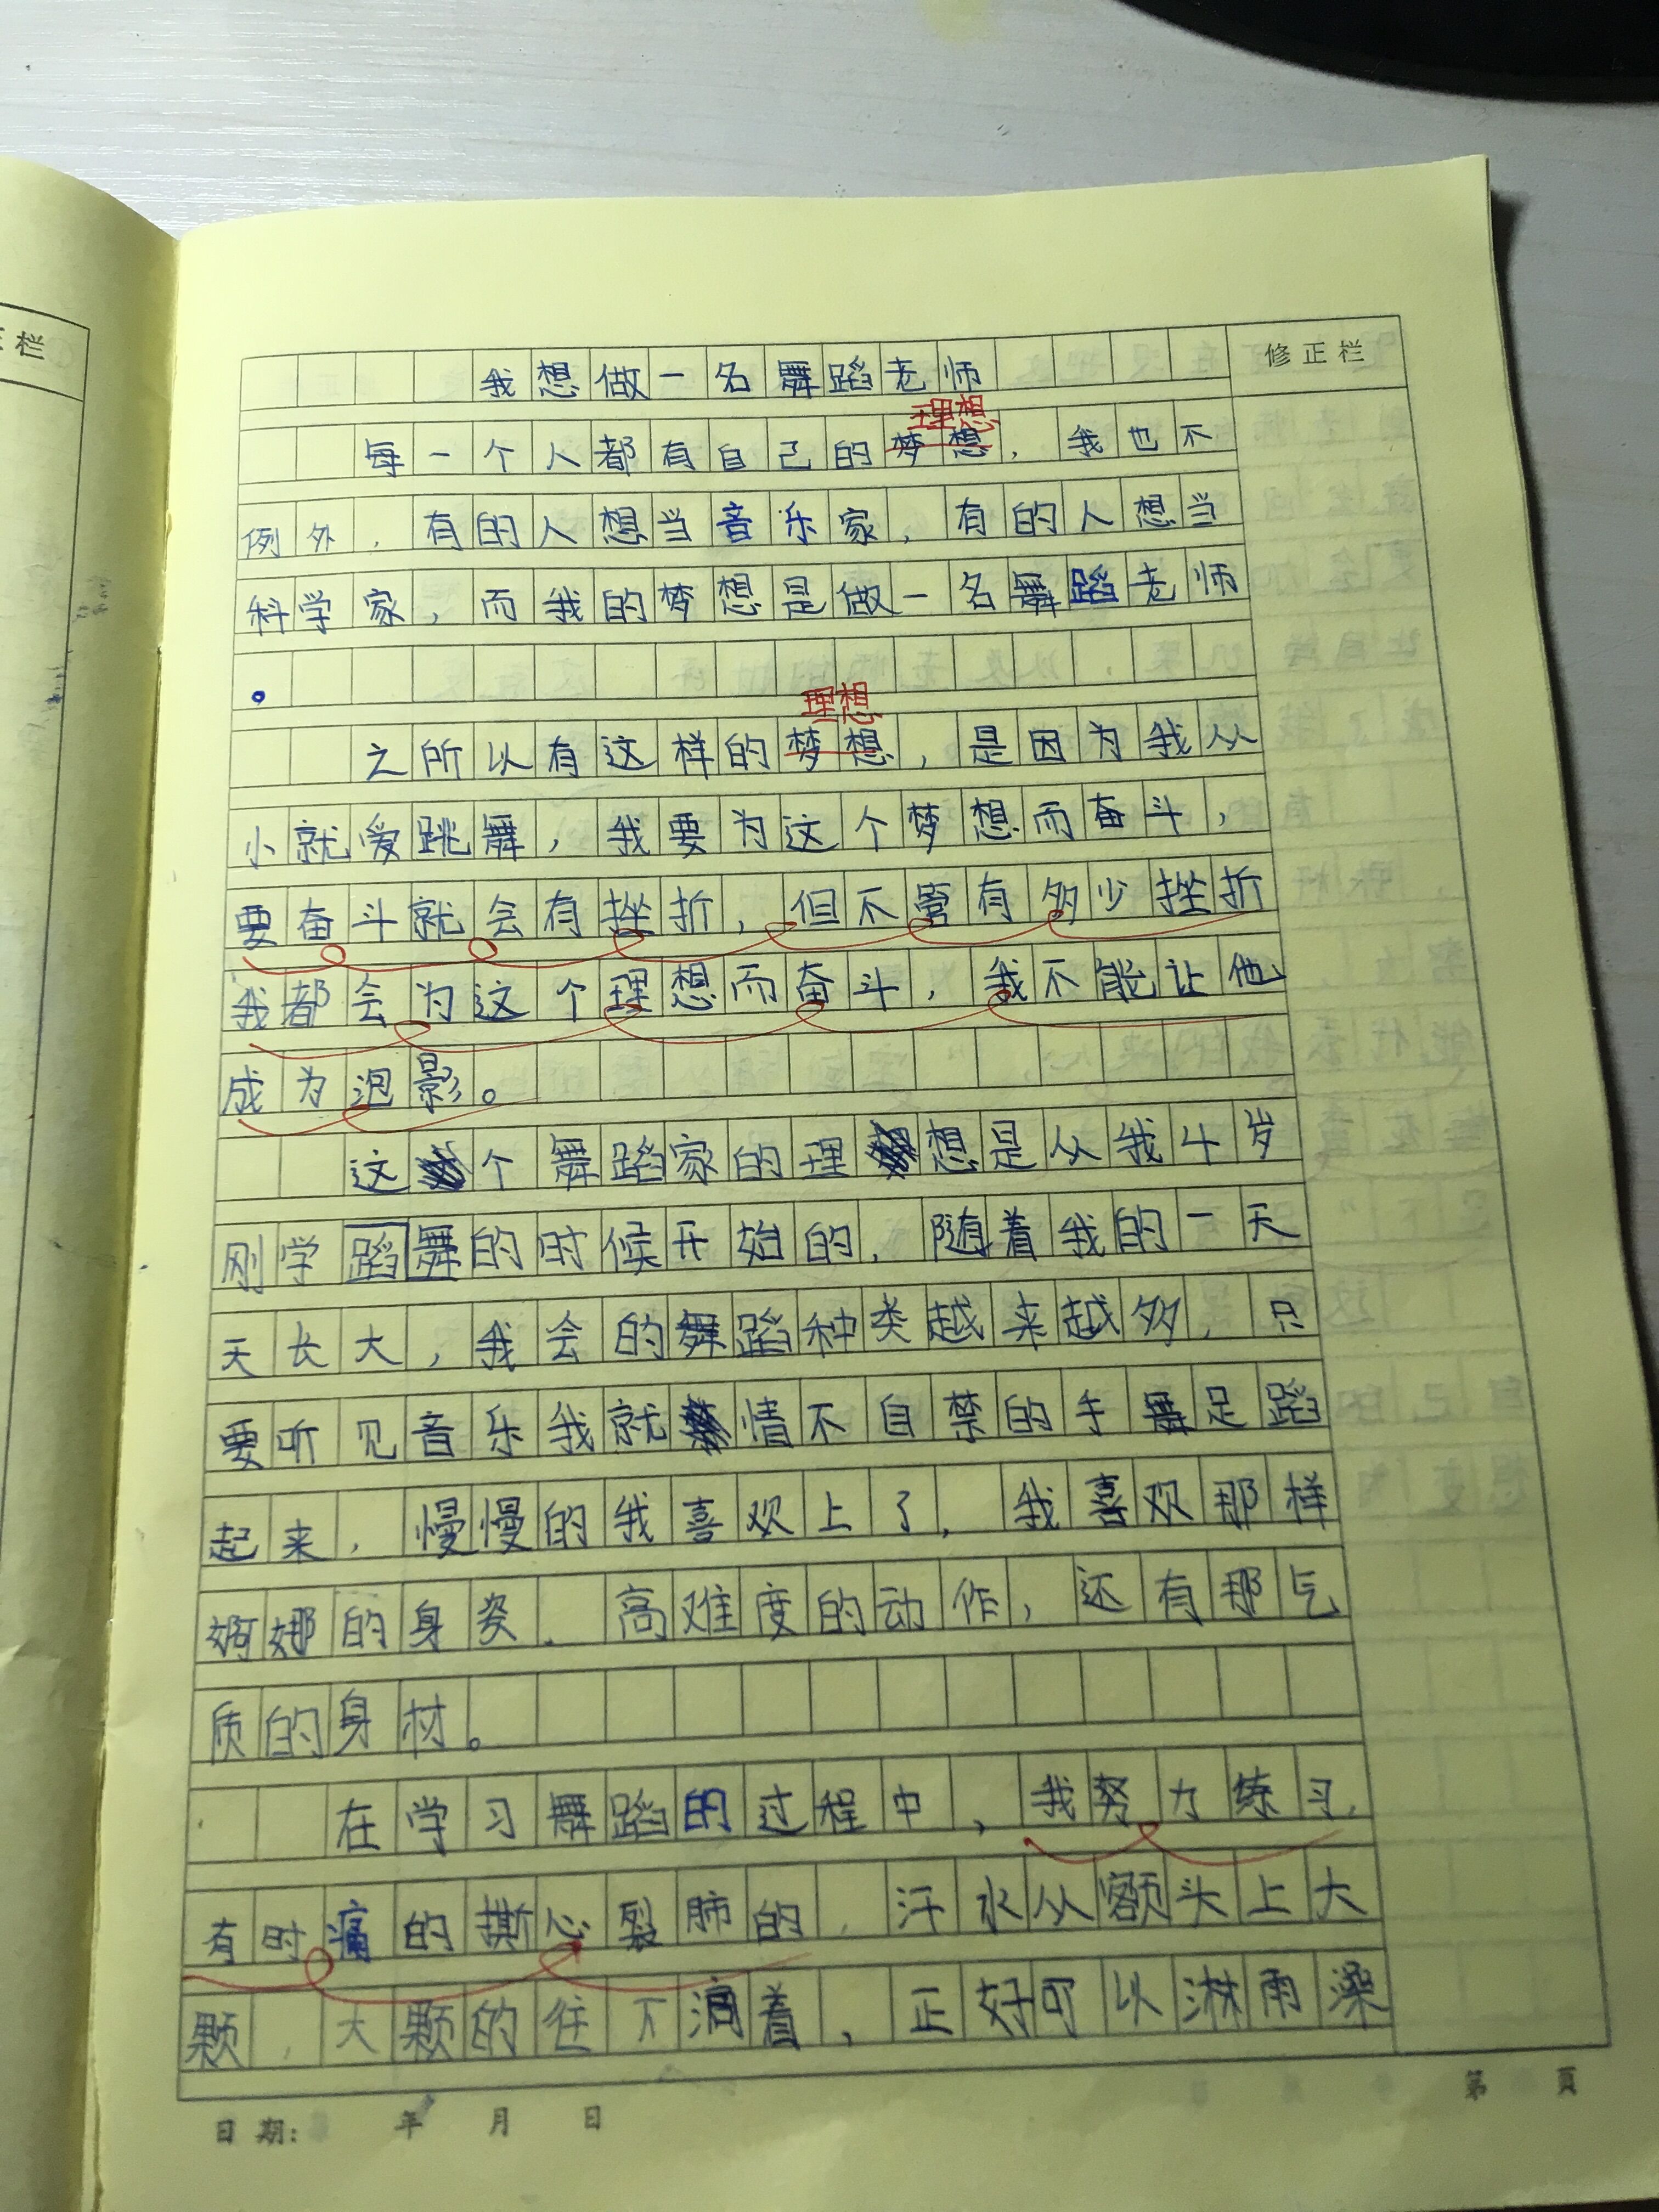 栏
修正栏
我想做一名舞蹈老师
理想
每一个人都有自己的梦想，我也不
例外，有的人想当音乐家，有的人想当
科学家，而我的梦想是做一名舞蹈老师
。
理想
之所以有这样的梦想，是因为我从
小就爱跳舞，我要为这个梦想而奋斗，
要奋斗就会有挫折，但不管有多少挫折
我都会为这个理想而奋斗，我不能让他
成为泡影。
这个舞蹈家的理想是从我4岁
刚学蹈舞的时候开始的，随着我的一天
天长大，我会的舞蹈种类越来越多，只
要听见音乐我就情不自禁的手舞足蹈
起来，慢慢的我喜欢上了，我喜欢那样
婀娜的身姿、高难度的动作，还有那气
质的身材。
在学习舞蹈的过程中，我努力练习，
有时痛的撕心裂肺的，汗水从额头上大
颗，大颗的往下滴着，正好可以淋雨澡
日期： 年 月 日
第 頁